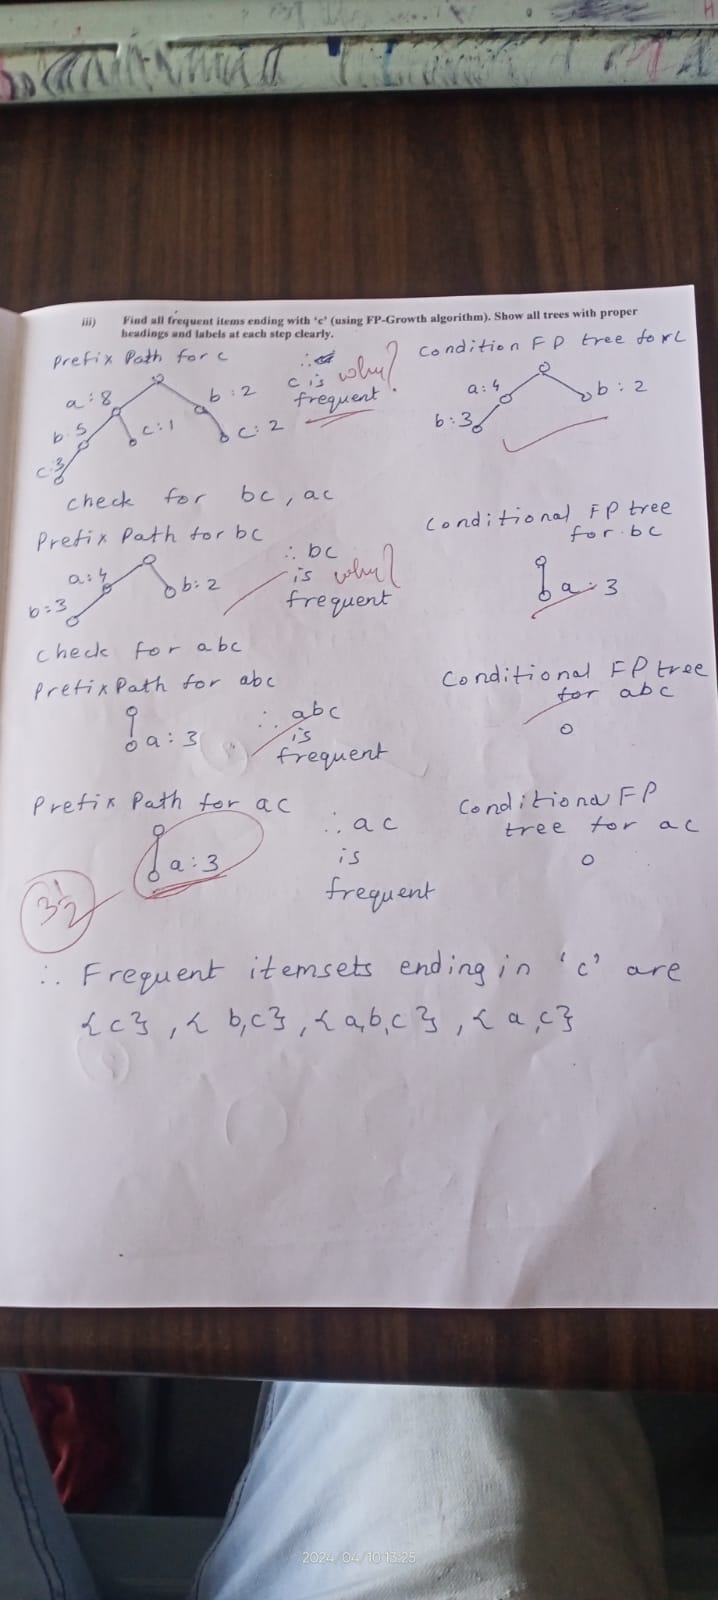 iii) Find all frequent items ending with ‘c’ (using FP-Growth algorithm). Show all trees with proper
headings and labels at each step clearly.
Prefix Path for c
a:8
b:2
b:5
c:1
c:2
c:3
∴
c is why?
frequent
Condition FP tree for c
a:4
b:2
b:3
check for bc, ac
Prefix Path for bc
a:4
b:2
b:3
∴ bc
is why?
frequent
Conditional FP tree
for bc
a:3
check for abc
Prefix Path for abc
a:3
∴ abc
is
frequent
Conditional FP tree
for abc
Prefix Path for ac
a:3
∴ ac
is
frequent
Conditional FP
tree for ac
3½
∴ Frequent itemsets ending in ‘c’ are
{c}, {b,c}, {a,b,c}, {a,c}
2024/04/10 13:25